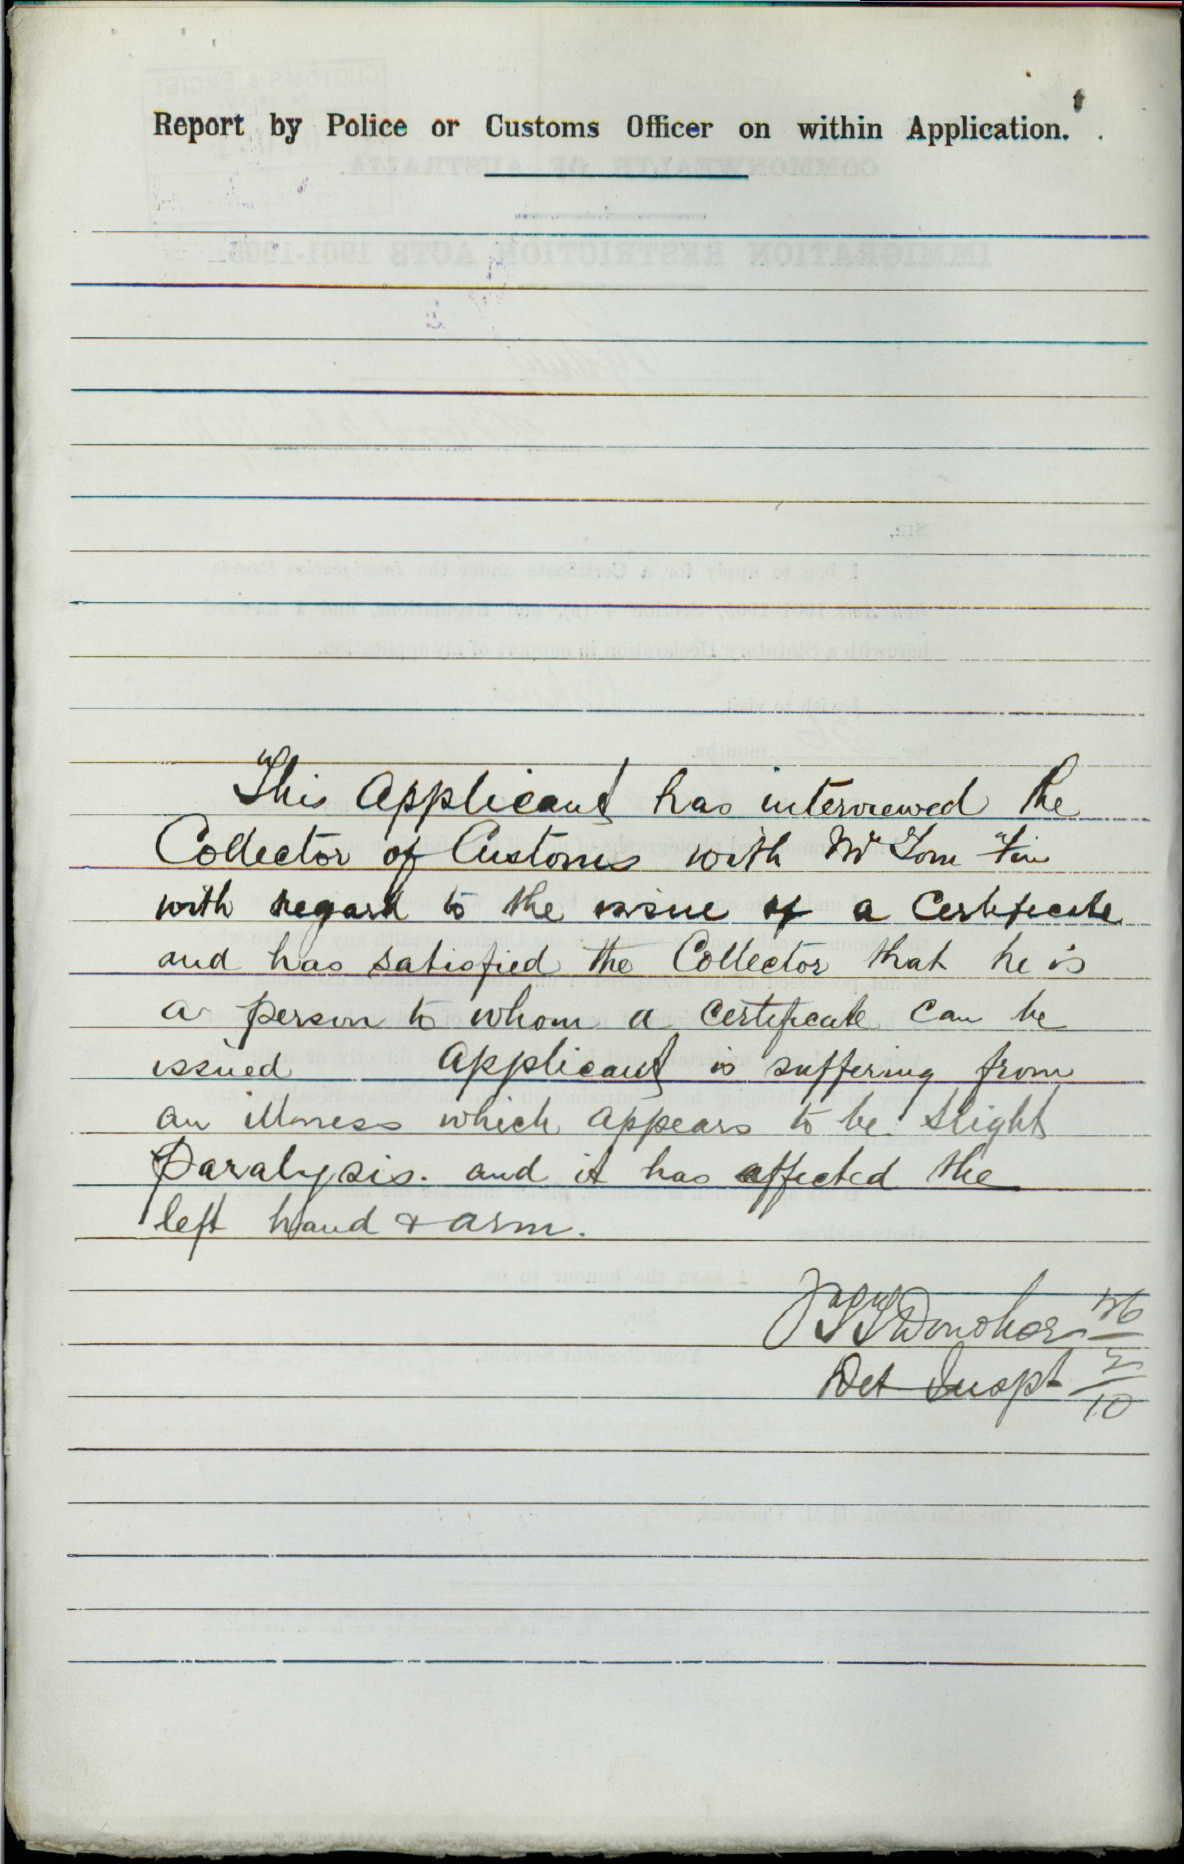 Report by Police or Customs Officer on within Application.
This Applicant has interviewed the
Collector of Customs with Mr Tom Fin
with regard to the issue of a Certificate
and has satisfied the Collector that he is
a person to whom a certificate can be
issued Applicant is suffering from
an illness which appears to be slight
Paralysis. and it has affected the
left hand & arm.
Donohoe 26
Det Inspt 2
10